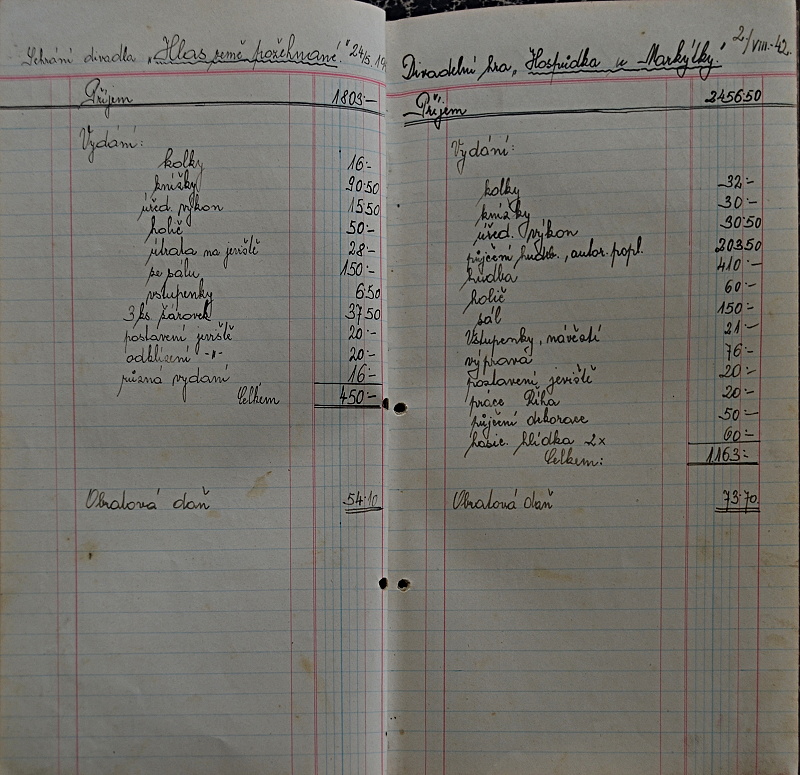 Sehrání divadla „Hlas země požehnané." 24/5. 19
Příjem 1803·–
Vydání:
kolky 16·–
knížky 90·50
úřed. výkon 15·50
holič 50·–
útrata na jevišti 28·–
ze sálu 150·–
vstupenky 6·50
3 ks. žárovek 37·50
postavení jeviště 20·–
odklizení -"- 20·–
různá vydání 16·–
Celkem 450·–
Obratová daň 54·10
Divadelní hra „Hospůdka u Markýtky." 2/VIII.-42.
Příjem 2456·50
Vydání:
kolky 32·–
knížky 30·–
úřed. výkon 30·50
půjčení hudeb., autor. popl. 203·50
hudba 410·–
holič 60·–
sál 150·–
Vstupenky, návěstí 21·–
výprava 76·–
postavení jeviště 20·–
práce Říha 20·–
půjčení dekorace 50·–
hasic. hlídka 2x 60·–
Celkem: 1163·–
Obratová daň 73·70